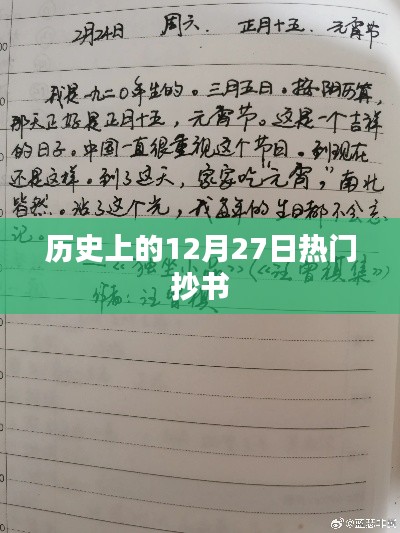 2月24日 周六. 正月十五. 元宵节
我是一九二0年生的。三月五日。按阴历算,
那天正好是正月十五,元宵节。这是一个吉祥
的日子。中国一直很重视这个节日。到现在
还是这样。到了这天,家家吃“元宵,”南北
皆然。沾了这个光,我每年的生日都不会忘
记。
历史上的12月27日热门
抄书
——《独坐小品》(《汪曾祺集》)
作者:汪曾祺